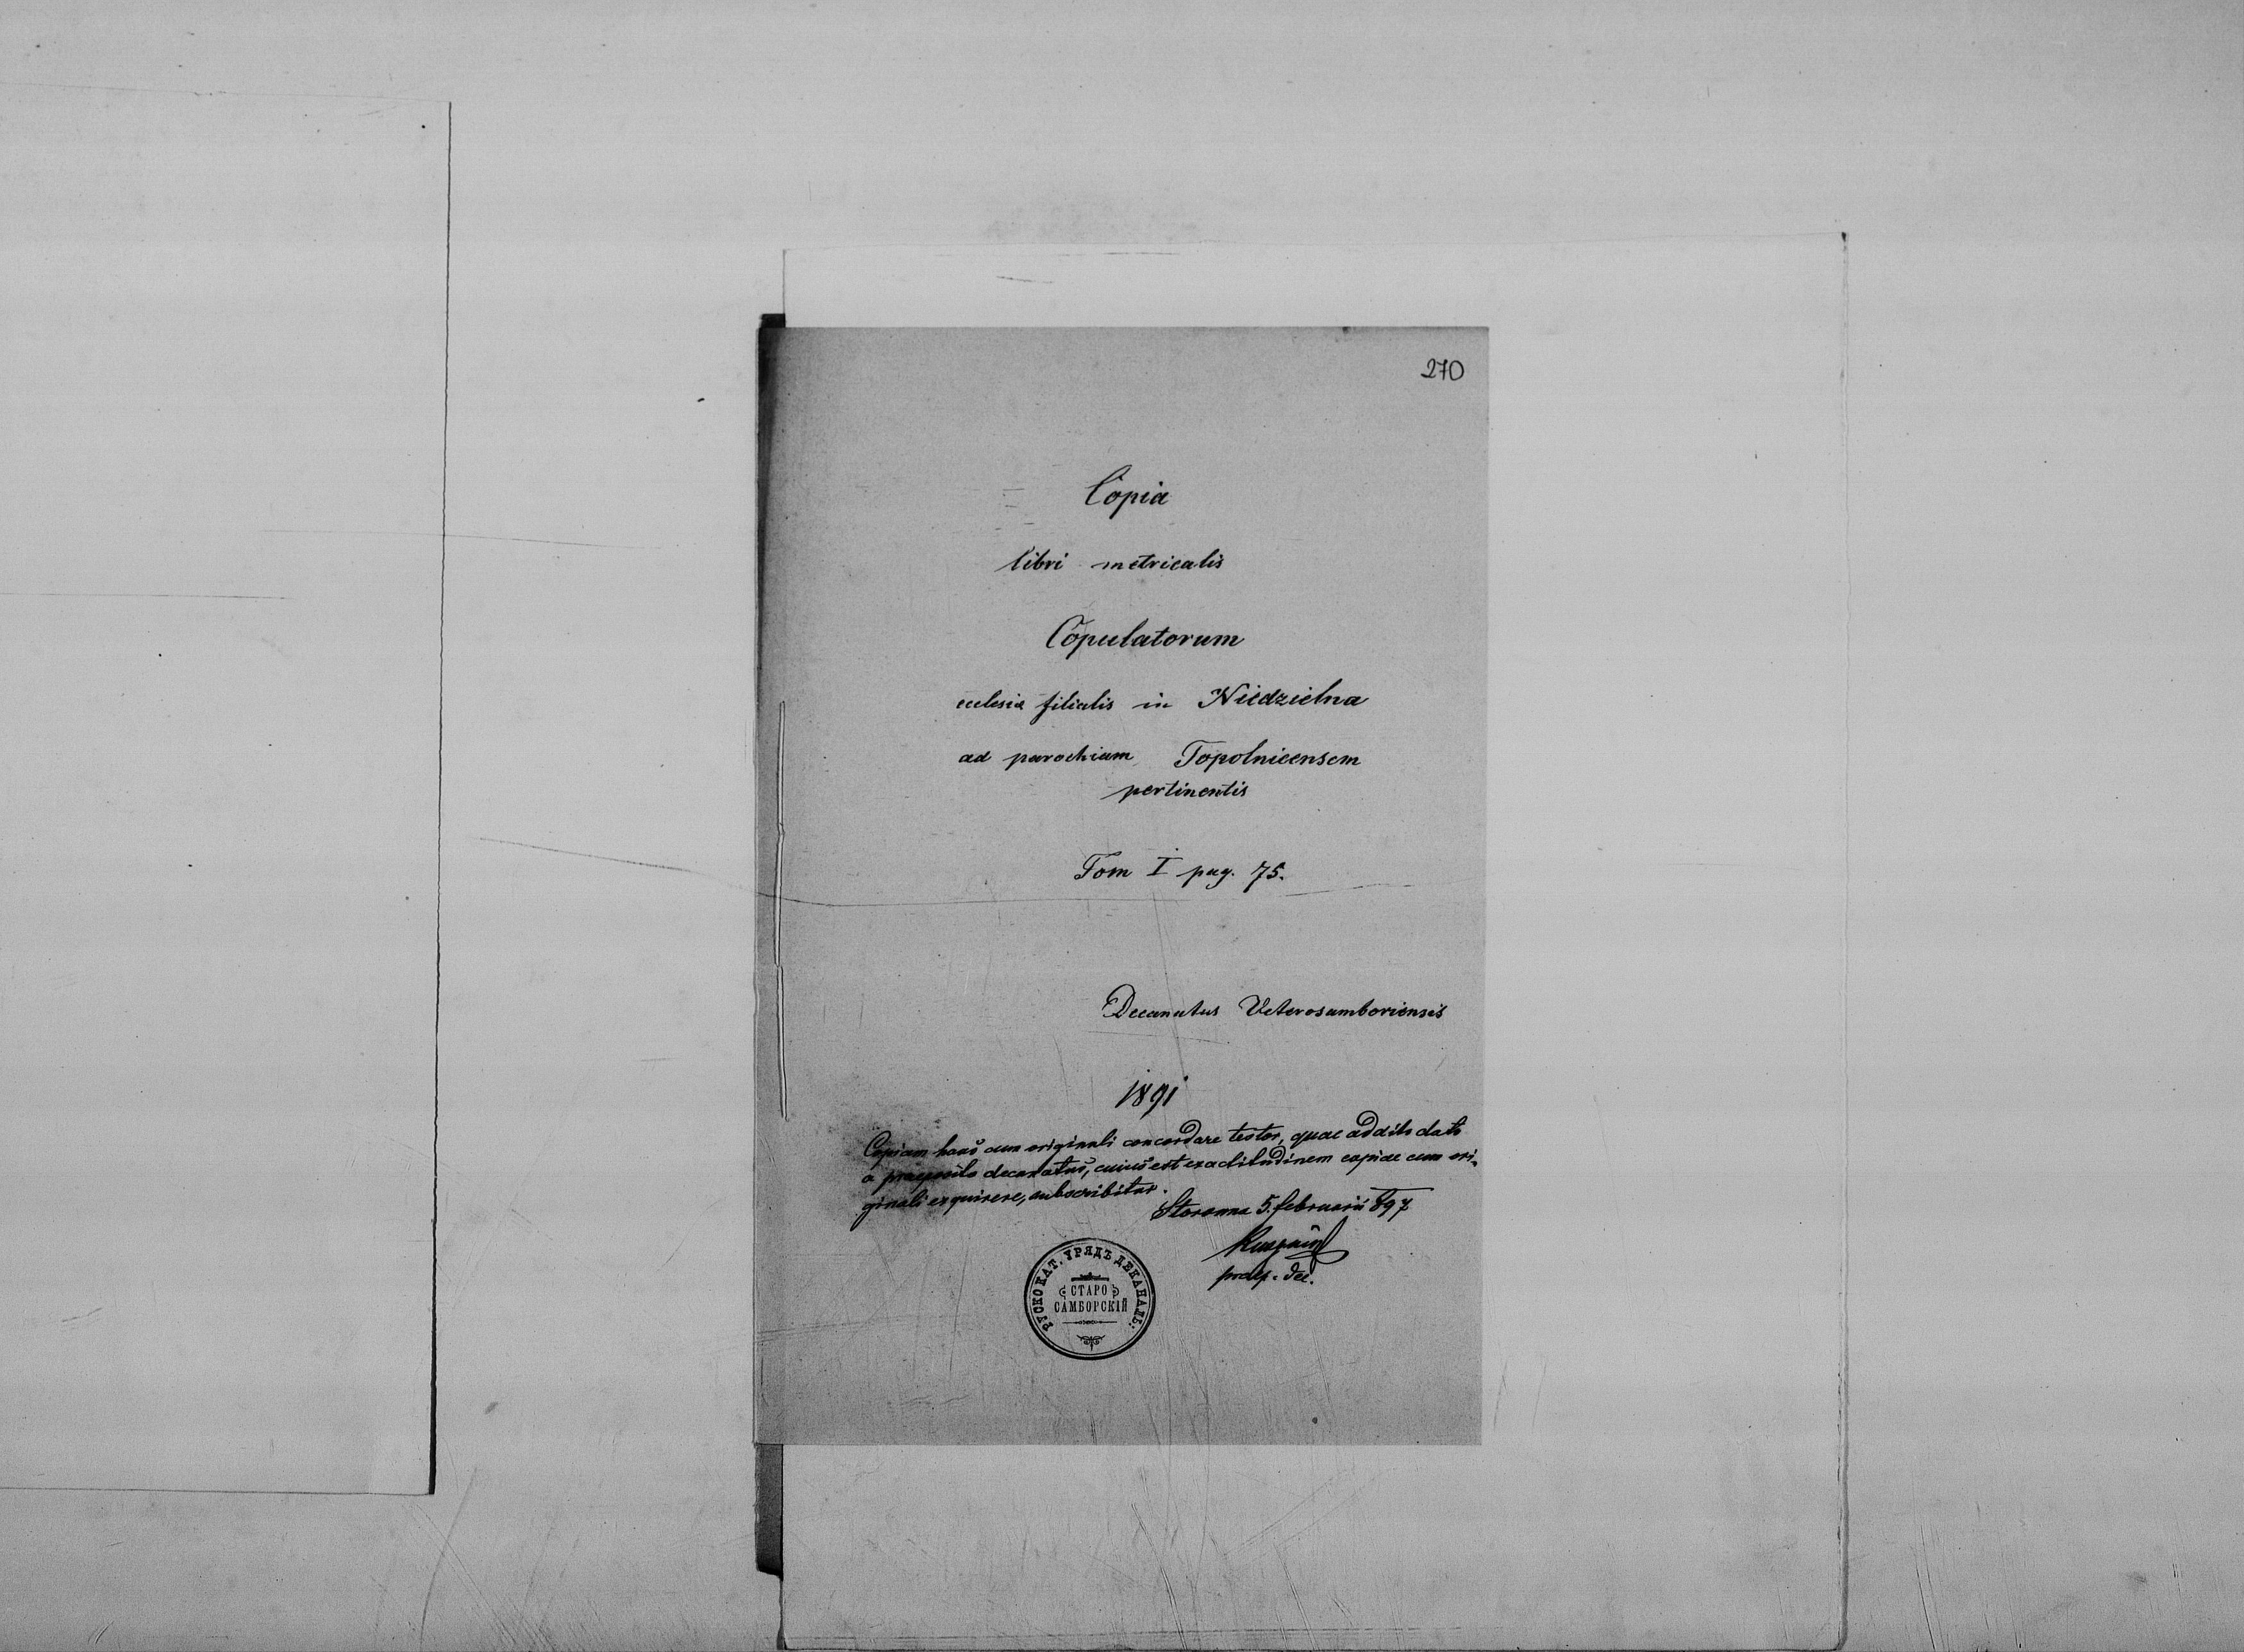 270
Copia
libri metricalis
Copulatorum
ecclesiæ filialis in Niedzielna
ad parochiam Topolnicensem
pertinentis
Tom I pag. 75.
Decanatus Veterosamboriensis
1891
Copiam hanc cum originali concordare testor, quae addito dato
a praeposito decanatus, cuius est exactitudinem copiae cum ori-
ginali exquirere, subscribitur.
5. februarii 897
praep. dec.
РУСКО КАТ. УРЯДЪ ДЕКАНАЛЬ:
СТАРО
САМБОРСКІЙ